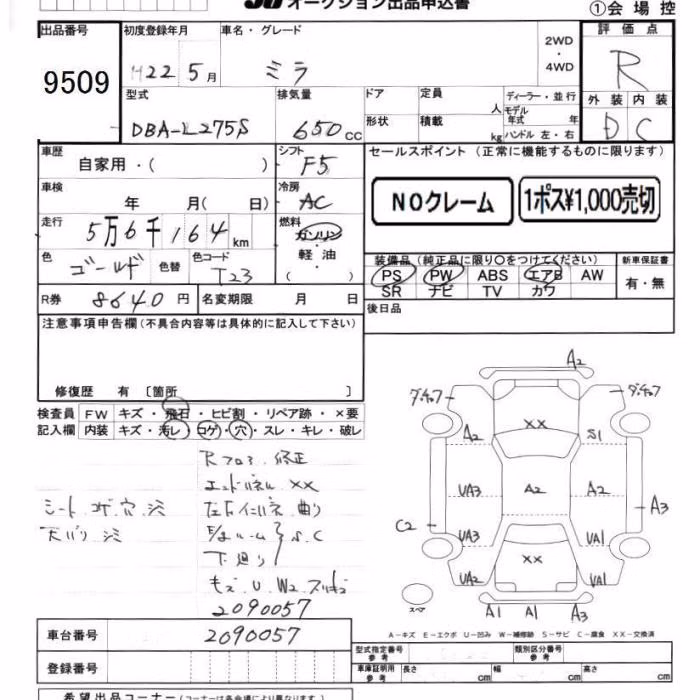 オークション出品申込書
①会場控
出品番号
9509
初度登録年月
H22 5月
車名・グレード
ミラ
2WD
・
4WD
評価点
R
型式
DBA-L275S
排気量
650cc
ドア
定員
人
ディーラー・並行
形状
積載
kg
モデル年式 年
ハンドル 左・右
外装 内装
D C
車歴
自家用・( )
シフト
F5
セールスポイント(正常に機能するものに限ります)
NOクレーム
1ポス¥1,000売切
車検
年 月( 日)
冷房
AC
走行
5万6千164km
燃料
ガソリン
・
軽・油
・
( )
色
ゴールド
色替
色コード
T23
装備品(純正品に限り○をつけてください)
PS PW ABS エアB AW
SR ナビ TV カワ
新車保証書
有・無
R券 8640円
名変期限 月 日
後日品
注意事項申告欄(不具合内容等は具体的に記入して下さい)
修復歴 有〔箇所 〕
検査員
記入欄
FW キズ・飛石・ヒビ割・リペア跡・×要
内装 キズ・汚レ・コゲ・穴・スレ・キレ・破レ
Rフロア 修正
エンドパネル ××
シート コゲ 穴 シミ
左右インパネ 曲り
天バリ シミ
下廻り
S.C
2090057
A2
ダ・チョウ
ダ・チョウ
××
A2
S1
UA3
A2
A2
A3
C2
UA3
UA1
××
UA2
UA1
スペア
A1 A1 A3
A-キズ E-エクボ U-凹み W-補修跡 S-サビ C-腐食 XX-交換済
車台番号 2090057
登録番号
型式指定番号
参考
類別区分番号
参考
車庫証明用
参考
長さ cm
幅 cm
高さ cm
希望出品コーナー(コーナーは各会場により異なります)